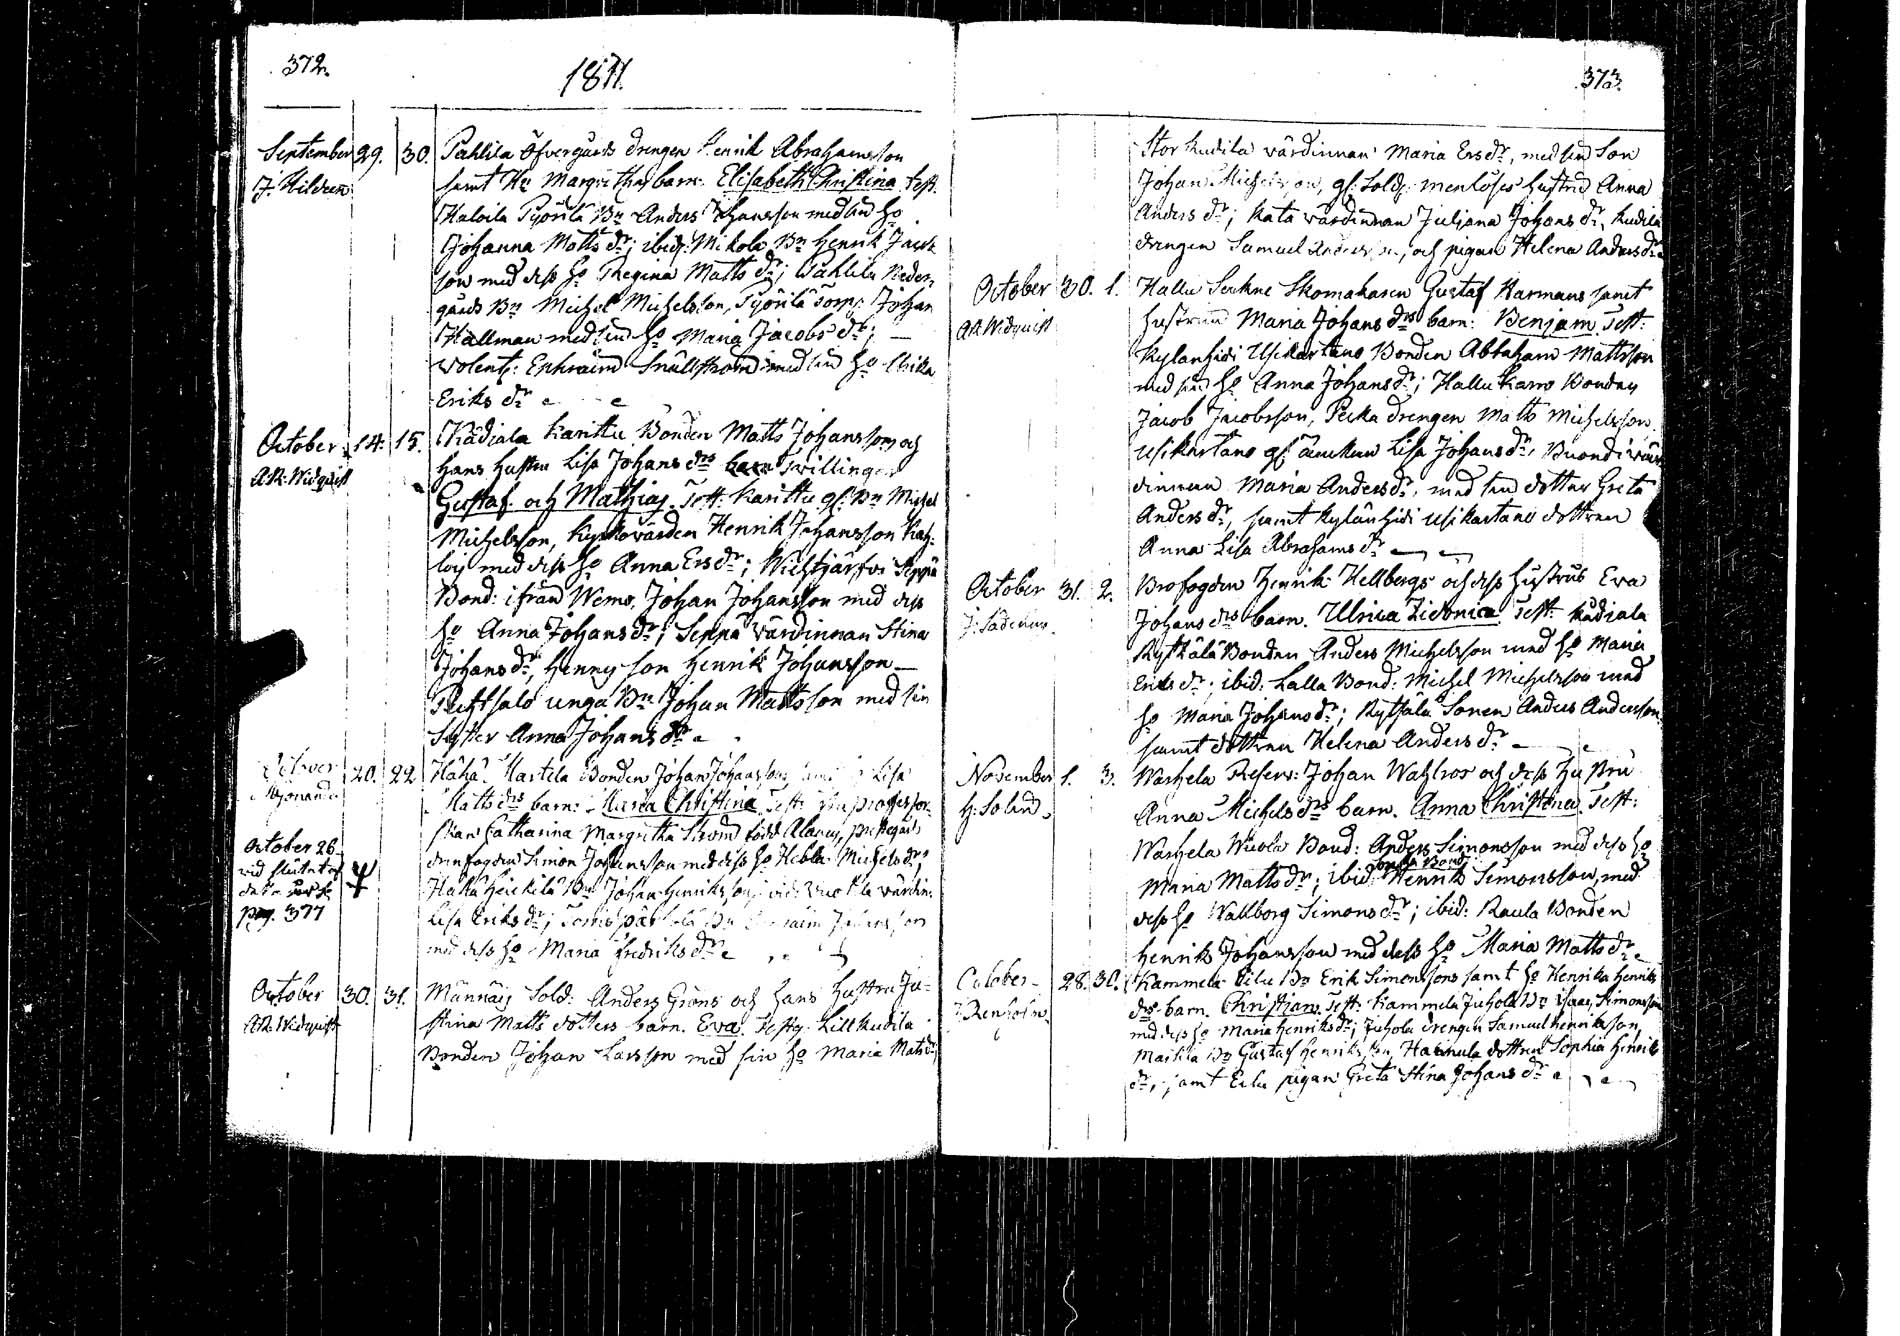 372.
1811.
September 29. 30. Pahlila Öfvergårds drengen Henrik Abrahamsson
J. Hildeen samt Hu Margretha barn. Elisabeth Christina test.
Kaloila Pyörilä Bn Anders Johansson med sin ho
Johanna Matts dr; ibid: Mikola Bn Henrik Jacob
son med dess ho Regina Matts dr; Pahlila Neder
gårds Bn Michel Michelsson, Pyörilä Torp: Johan
Hallman med sin ho Maria Jacobs dr; —
Volent: Ephraim Snällström med sin ho Ulrika
Eriks dr
October 14. 15. Kadiala Karittu Bonden Matts Johansson och
A.R. Widquist hans hustru Lisa Johans drs barn Twillingar
Gustaf och Mathias. Test. Karittu gl: Bn Michel
Michelsson, Kyrkovärden Henrik Johansson
med dess ho Anna Ers dr; Seppä
Bond: ifrån Wemo, Johan Johansson med dess
ho Anna Johans dr; Seppä värdinnan Stina
Johans dr, Henny son Henrik Johansson —
unga Bn Johan Mattsson med sin
Syster Anna Johans dr
October 20. 22 Haha Martila Bonden Johan Johansson samt Lisa
Matts drs barn: Maria Christina Test: Fru professor
skan Catharina Margretha född Alanus, prestegårds
drenfogden Simon Johansson med dess ho Hebla Michels dr,
October 26
vid slutet af
pag. 377
Haha Heickilä Bn Johan Henriksson, värdin:
Lisa Eriks dr; Bn Johansson
med dess ho Maria Fredriks dr
October 30. 31. Männäis Sold: Anders Gröns och hans hustru Ju-
A.R. Widquist stina Matts dotters barn. Eva. Testg. Lill Kudila
Bonden Johan Larsson med sin ho Maria Mats dr,
373.
Stor Kudila värdinnan Maria Ers dr, med sin Son
Johan Michelsson, gl: Sold: menlöses hustru Anna
Anders dr; Kata värdinnan Juliana Johans dr, Kudila
drengen Samuel Andersson, och pigan Helena Anders dr
October 30. 1. Hallu Seukne Skomakaren Gustaf Harmans samt
A.R. Widquist hustrun Maria Johans drs barn: Benjam. Test:
Kylänhidi Usikartano Bonden Abraham Mattsson
med sin ho Anna Johans dr; Hallu Karro Bonden
Jacob Jacobsson, Pecka drengen Matts Michelsson
Usikartano gl: änckan Lisa Johans dr, Buondi vär
dinnan Maria Anders dr, med sin dotter Greta
Anders dr, samt Kylänhidi Usikartano dottren
Anna Lisa Abrahams dr
October 31. 2. Brofogden Henrik Hellbergs och dess hustrus Eva
J: Sadenius Johans drs barn. Ulrica Zidonica. Test: Kadiala
Rytsälä Bonden Anders Michelsson med ho Maria
Eriks dr; ibid: Lalla Bond: Michel Michelsson med
ho Maria Johans dr; Rytsälä Sonen Anders Andersson
samt dottren Helena Anders dr
November 1. 3. Warhela Reserv: Johan Wahlros och dess hustru
H: Solend. Anna Michels drs barn. Anna Christina. Test:
Warhela Nicola Bond: Anders Simonsson med dess ho
Maria Matts dr; ibid: Bond: Henrik Simonsson, med
dess ho Wallborg Simons dr; ibid: Raula Bonden
Henrik Johansson med dess ho Maria Matts dr
October 28. 30. Kammela Eilu Bn Erik Simonssons samt ho Henrika Henriks
J: Renholm. drs barn. Christian. Test: Kammela Juhola Bn Isaac Simonsson
med dess ho Maria Henriks dr; Juhola drengen Samuel Henriksson,
Martila Bn Gustaf Henriksson, Hannula dottren Sophia Henriks
dr, samt Eilu pigan Greta Stina Johans dr